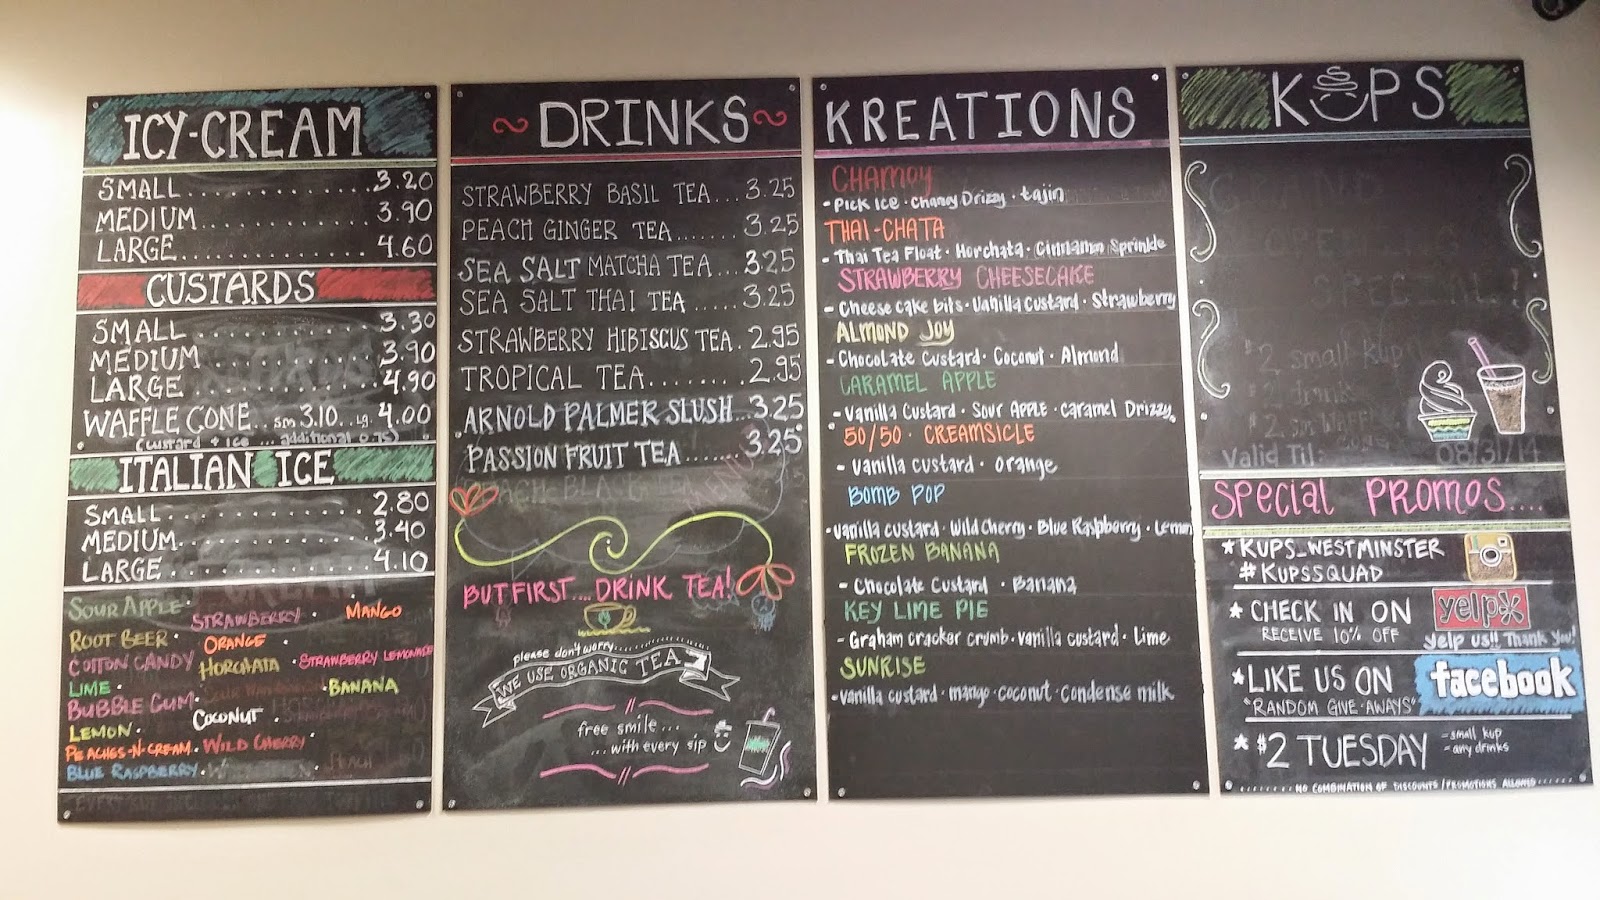 ICY-CREAM
SMALL............3.20
MEDIUM...........3.90
LARGE............4.60
CUSTARDS
SMALL............3.30
MEDIUM...........3.90
LARGE............4.90
WAFFLE CONE...sm 3.10..lg. 4.00
(custard + ice ... additional 0.75)
ITALIAN ICE
SMALL............2.80
MEDIUM...........3.40
LARGE............4.10
SOUR APPLE · STRAWBERRY · MANGO
ROOT BEER · ORANGE
COTTON CANDY HORCHATA · STRAWBERRY LEMONADE
LIME · · BANANA
BUBBLE GUM · COCONUT
LEMON ·
PEACHES-N-CREAM · WILD CHERRY
BLUE RASPBERRY ·
~ DRINKS ~
STRAWBERRY BASIL TEA...3.25
PEACH GINGER TEA.......3.25
SEA SALT MATCHA TEA...3.25
SEA SALT THAI TEA......3.25
STRAWBERRY HIBISCUS TEA.2.95
TROPICAL TEA........2.95
ARNOLD PALMER SLUSH...3.25
PASSION FRUIT TEA.......3.25
BUT FIRST.... DRINK TEA!
please don't worry........
WE USE ORGANIC TEA
free smile ...
... with every sip
KREATIONS
CHAMOY
- Pick Ice · Chamoy Drizzy · tajin
THAI-CHATA
- Thai Tea Float · Horchata · Cinnamon Sprinkle
STRAWBERRY CHEESECAKE
- Cheese cake bits · Vanilla Custard · Strawberry
ALMOND JOY
- Chocolate Custard · Coconut · Almond
CARAMEL APPLE
- Vanilla Custard · Sour Apple · Caramel Drizzy
50/50 · CREAMSICLE
- Vanilla custard · orange
BOMB POP
- Vanilla custard · Wild Cherry · Blue Raspberry · Lemon
FROZEN BANANA
- Chocolate Custard · Banana
KEY LIME PIE
- Graham cracker crumb · vanilla custard · Lime
SUNRISE
- vanilla custard · mango · coconut · condense milk
KUPS
GRAND
SPECIAL!
$2 small kup
$2 drink
Valid Til: 08/31/14
SPECIAL PROMOS.....
* KUPS_WESTMINSTER
# KUPSSQUAD
* CHECK IN ON yelp
RECEIVE 10% OFF
yelp us!! Thank you!
* LIKE US ON facebook
"RANDOM GIVE-AWAYS"
* $2 TUESDAY - small kup
- any drinks
........ NO COMBINATION OF DISCOUNTS/PROMOTIONS ALLOWED ........